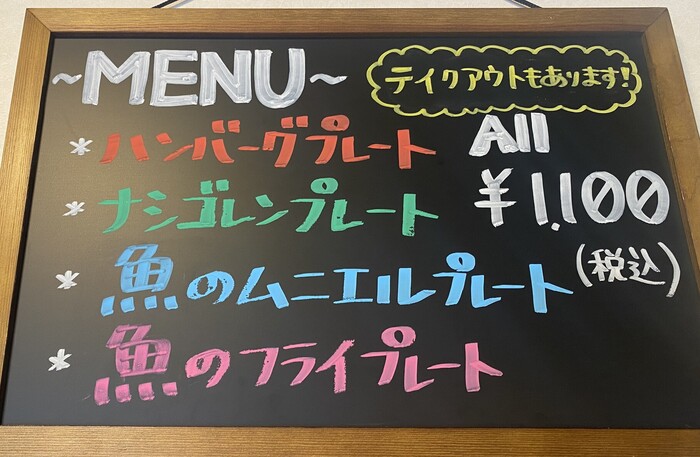 ~MENU~
テイクアウトもあります!
* ハンバーグプレート
All
¥1,100
* ナシゴレンプレート
(税込)
* 魚のムニエルプレート
* 魚のフライプレート